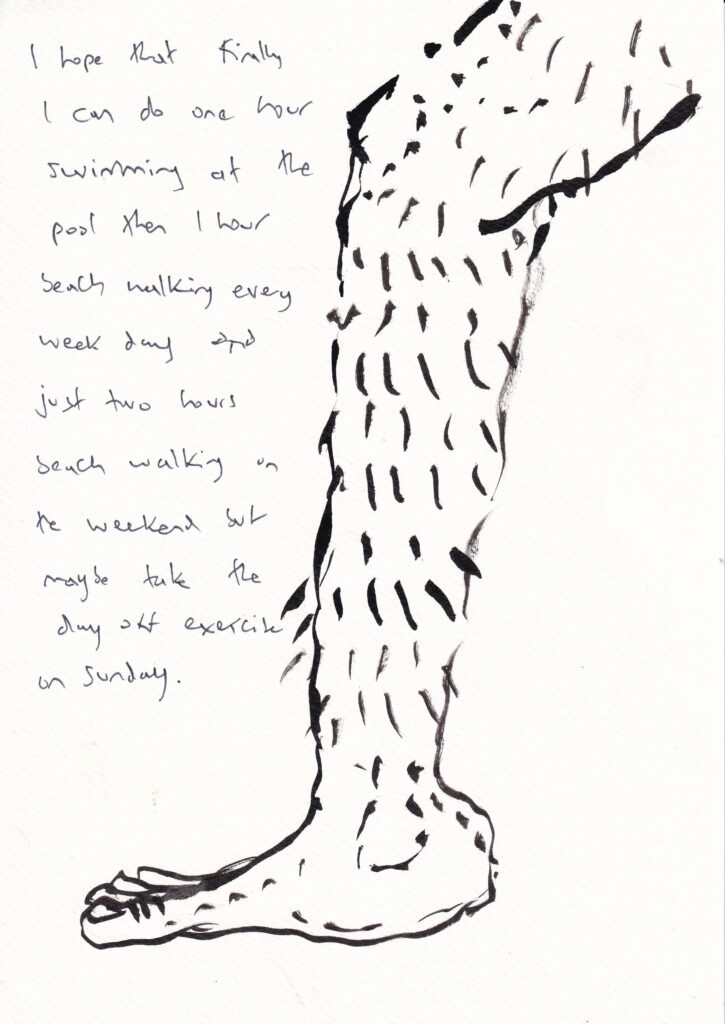 I hope that finally
I can do one hour
swimming at the
pool then 1 hour
beach walking every
week day and
just two hours
beach walking on
the weekend but
maybe take the
day off exercise
on Sunday.